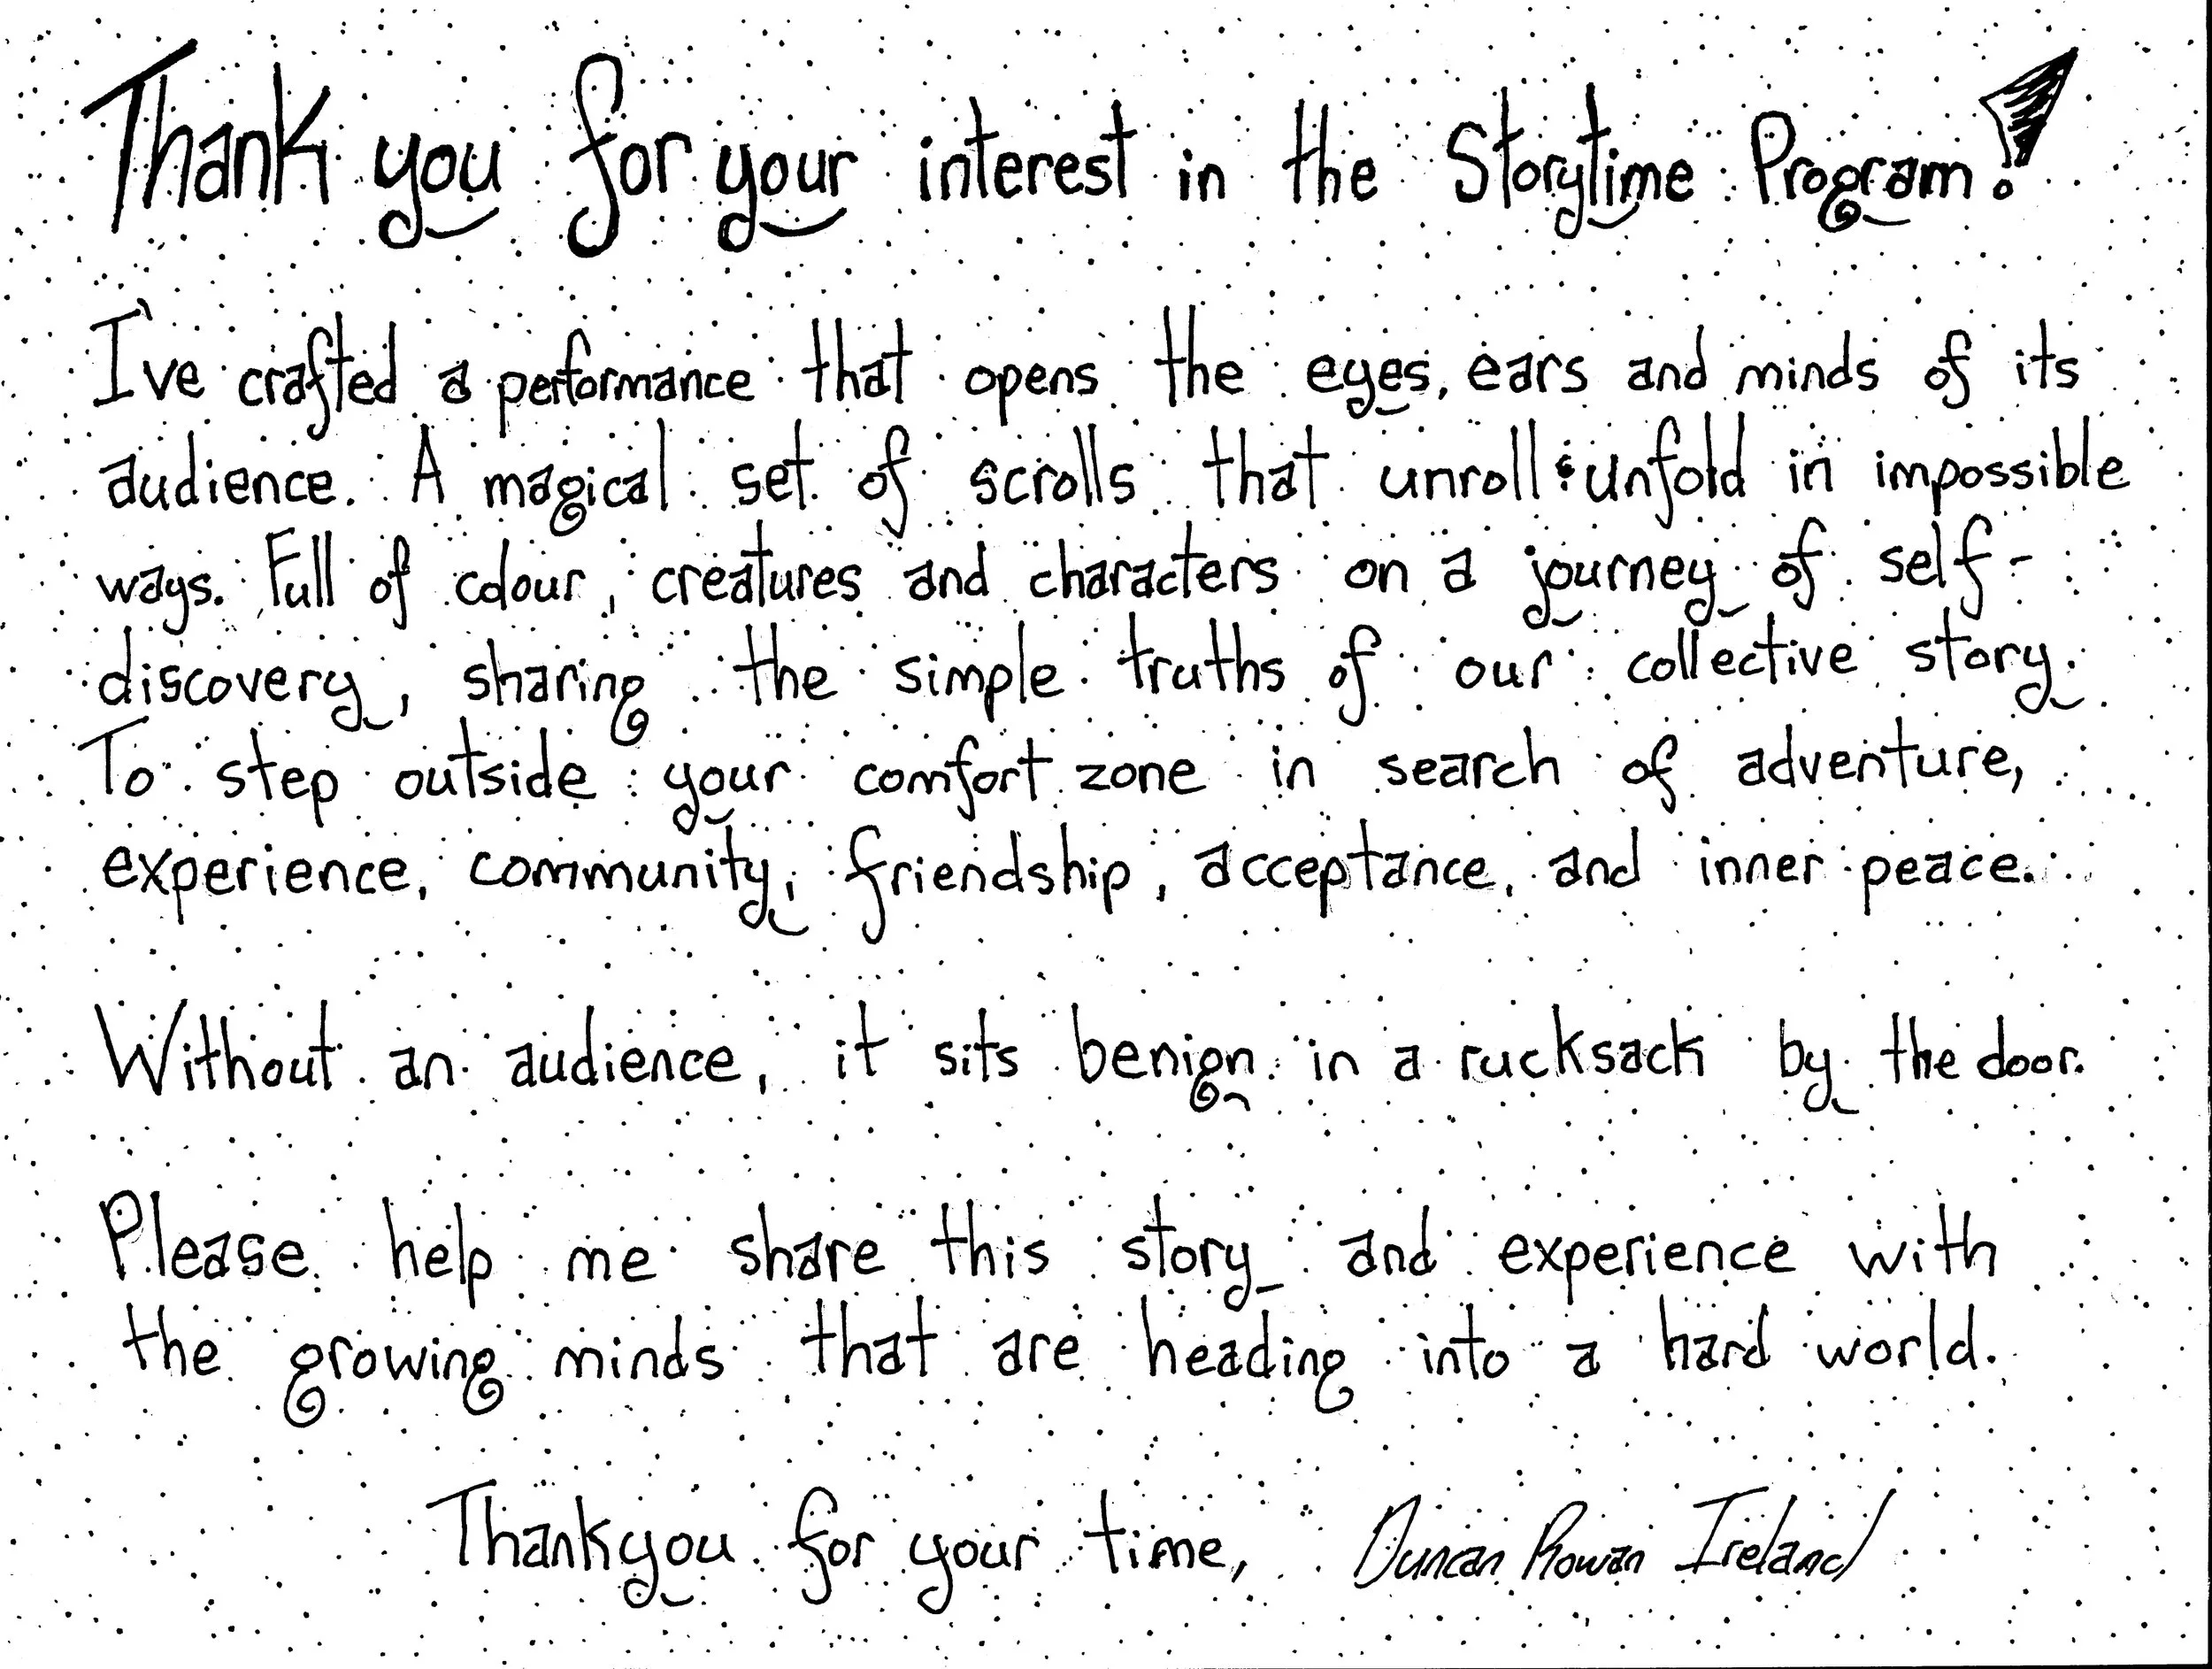 Thank you for your interest in the Storytime Program!
I've crafted a performance that opens the eyes, ears and minds of its
audience. A magical set of scrolls that unroll & unfold in impossible
ways. Full of colour, creatures and characters on a journey of self-
discovery, sharing the simple truths of our collective story.
To step outside your comfort zone in search of adventure,
experience, community, friendship, acceptance, and inner peace.
Without an audience, it sits benign in a rucksack by the door.
Please help me share this story and experience with
the growing minds that are heading into a hard world.
Thankyou for your time, Duncan Rowan Ireland